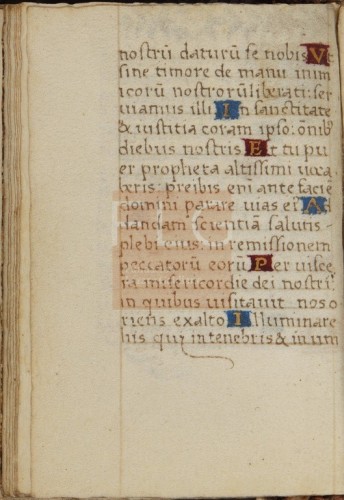 nostrū daturū se nobis Vt
sine timore de manu inim
icorū nostrorū liberati: ser
uiamus illi In sanctitate
& iustitia coram ipso: omīb
diebus nostris Et tu pu
er propheta altissimi uoca
beris: preibis enī ante facie
domini parare uias ei Ad
dandam scientiā salutis
plebi eius: in remissionem
peccatorū eorū Per uisce
ra misericordie dei nostri:
in quibus uisitauit nos o
riens ex alto Illuminare
his qui in tenebris & in um